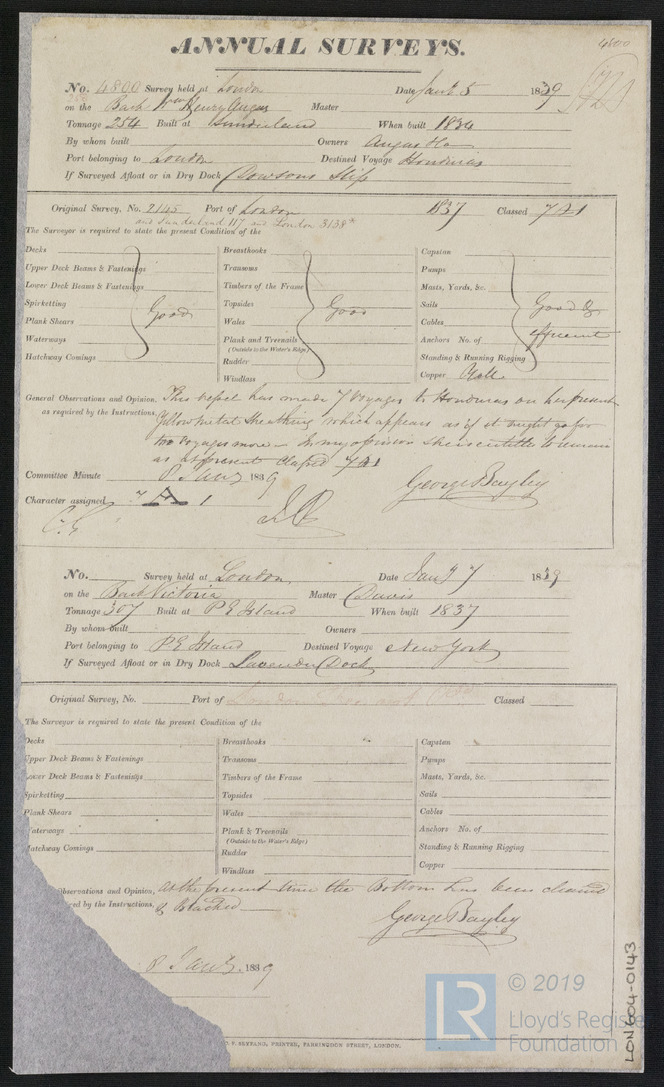 4800
ANNUAL SURVEYS.
No. 4800 Survey held at London Date Jany. 5 1839
on the Bark Wm Henry Angas Master
Tonnage 254 Built at Sunderland When built 1834
By whom built Owners Angas & Co
Port belonging to London Destined Voyage Honduras
If Surveyed Afloat or in Dry Dock Dowsons Slip
Original Survey, No. 2145 Port of London 1837 Classed 7 A 1
and Sunderland 117 and London 3138*
The Surveyor is required to state the present Condition of the
Decks Breasthooks Capstan
Upper Deck Beams & Fastenings Transoms Pumps
Lower Deck Beams & Fastenings Timbers of the Frame Masts, Yards, &c.
Spirketting Good Topsides Good Sails Good &
Plank Shears Wales Cables efficient
Waterways Plank and Treenails Anchors No. of
(Outside to the Water's Edge)
Hatchway Comings Rudder Standing & Running Rigging
Windlass Copper Yell.
General Observations and Opinion, This vessel has made 7 Voyages to Honduras on her present
as required by the Instructions, Yellow metal Sheathing which appears as if it might go for
two voyages more – In my opinion she is entitled to remain
as at present classed 7 A 1
Committee Minute 8 Jany 1839 George Bayley
Character assigned 7 A 1
No. Survey held at London Date Jany 7 1839
on the Bark Victoria Master Davis
Tonnage 307 Built at P E Island When built 1837
By whom built Owners
Port belonging to P E Island Destined Voyage New York
If Surveyed Afloat or in Dry Dock Lavender Dock
Original Survey, No. Port of London Classed
The Surveyor is required to state the present Condition of the
Decks Breasthooks Capstan
Upper Deck Beams & Fastenings Transoms Pumps
Lower Deck Beams & Fastenings Timbers of the Frame Masts, Yards, &c.
Spirketting Topsides Sails
Plank Shears Wales Cables
Waterways Plank & Treenails Anchors No. of
(Outside to the Water's Edge)
Hatchway Comings Rudder Standing & Running Rigging
Windlass Copper
Observations and Opinion, At the present time the Bottom has been cleaned
ired by the Instructions, & Blacked
George Bayley
8 Jany. 1839
SEYFANG, PRINTER, FARRINGDON STREET, LONDON.
LON604-0143
LR © 2019
Lloyd's Register
Foundation